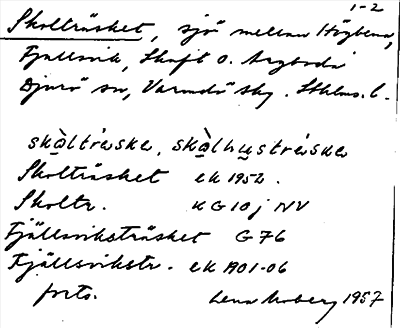 1-2
Skolträsket, sjö mellan Högbena,
Fjällsvik, Skaft o. Aspboda
Djurö sn, Värmdö sky. Sthlms. l.
skàlträske, skàlhusträske
Skolträsket ek 1952.
Skoltr. KG 10 j NV
Fjällsviksträsket G 76
Fjällsvikstr. ek 1901-06
forts. Lena Moberg 1957